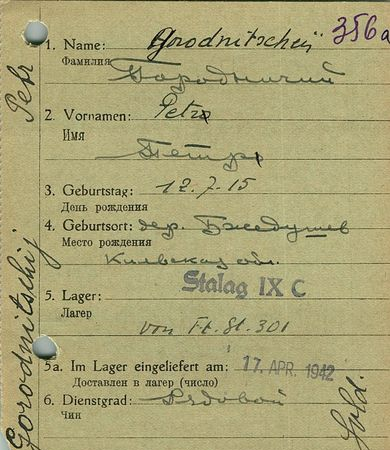 356a
1. Name: Gorodnitschij
Фамилия
Городничий
2. Vornamen: Petr
Имя
Петр
3. Geburtstag: 12.7.15
День рождения
4. Geburtsort: дер.
Место рождения
Киевская обл.
5. Lager: Stalag IX C
Лагер
von Fr. St. 301
5a. Im Lager eingeliefert am: 17. APR. 1942
Доставлен в лагер (число)
6. Dienstgrad: Рядовой
Чин
Sold.
Gorodnitschij Petr